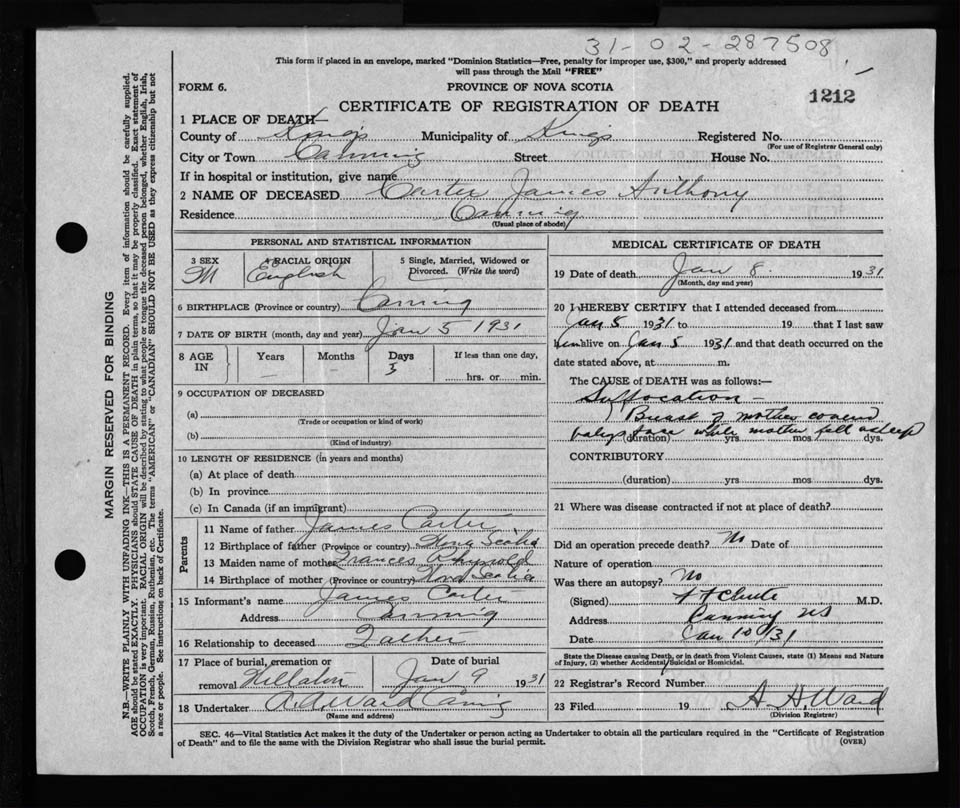 31-02-287508
This form if placed in an envelope, marked "Dominion Statistics—Free, penalty for improper use, $300," and properly addressed
will pass through the Mail "FREE"
FORM 6.
PROVINCE OF NOVA SCOTIA
1212
CERTIFICATE OF REGISTRATION OF DEATH
1 PLACE OF DEATH—
County of Kings Municipality of Kings Registered No.
(For use of Registrar General only)
City or Town Canning Street House No.
If in hospital or institution, give name
2 NAME OF DECEASED Carter James Anthony
Residence Canning
(Usual place of abode)
PERSONAL AND STATISTICAL INFORMATION
3 SEX M
4 RACIAL ORIGIN English
5 Single, Married, Widowed or Divorced. (Write the word)
6 BIRTHPLACE (Province or country) Canning
7 DATE OF BIRTH (month, day and year) Jan 5 1931
8 AGE IN Years Months Days If less than one day,
— — 3 hrs. or min.
9 OCCUPATION OF DECEASED
(a)
(Trade or occupation or kind of work)
(b)
(Kind of industry)
10 LENGTH OF RESIDENCE (in years and months)
(a) At place of death
(b) In province
(c) In Canada (if an immigrant)
Parents
11 Name of father James Carter
12 Birthplace of father (Province or country) Nova Scotia
13 Maiden name of mother Frances Arnold
14 Birthplace of mother (Province or country) Nova Scotia
15 Informant's name James Carter
Address Canning
16 Relationship to deceased Father
17 Place of burial, cremation or Date of burial
removal Hillaton Jan 9 1931
18 Undertaker A. A. Ward Canning
(Name and address)
MEDICAL CERTIFICATE OF DEATH
19 Date of death Jan 8. 1931
(Month, day and year)
20 I HEREBY CERTIFY that I attended deceased from
Jan 5 1931 to 19 that I last saw
him alive on Jan 5 1931 and that death occurred on the
date stated above, at m.
The CAUSE of DEATH was as follows:—
Suffocation —
Breast of mother covered
babys face while mother fell asleep
(duration) yrs. mos. dys.
CONTRIBUTORY
(duration) yrs. mos. dys.
21 Where was disease contracted if not at place of death?
Did an operation precede death? No Date of
Nature of operation
Was there an autopsy? No
(Signed) Chute M.D.
Address Canning NS
Date Jan 10/31
State the Disease causing Death, or in death from Violent Causes, state (1) Means and Nature
of Injury, (2) whether Accidental, Suicidal or Homicidal.
22 Registrar's Record Number
23 Filed 19 A. A. Ward
(Division Registrar)
SEC. 46—Vital Statistics Act makes it the duty of the Undertaker or person acting as Undertaker to obtain all the particulars required in the "Certificate of Registration
of Death" and to file the same with the Division Registrar who shall issue the burial permit.
(OVER)
MARGIN RESERVED FOR BINDING
N.B.—WRITE PLAINLY WITH UNFADING INK—THIS IS A PERMANENT RECORD. Every item of information should be carefully supplied.
AGE should be stated EXACTLY. PHYSICIANS should STATE CAUSE OF DEATH in plain terms, so that it may be properly classified. Exact statement of
OCCUPATION is very important. RACIAL ORIGIN will be described by stating to what people or race the deceased person belonged, whether English, Irish,
Scotch, French, German, Russian, Ruthenian, etc. The terms "AMERICAN" or "CANADIAN" SHOULD NOT BE USED as they express citizenship but not
a race or people. See instructions on back of Certificate.